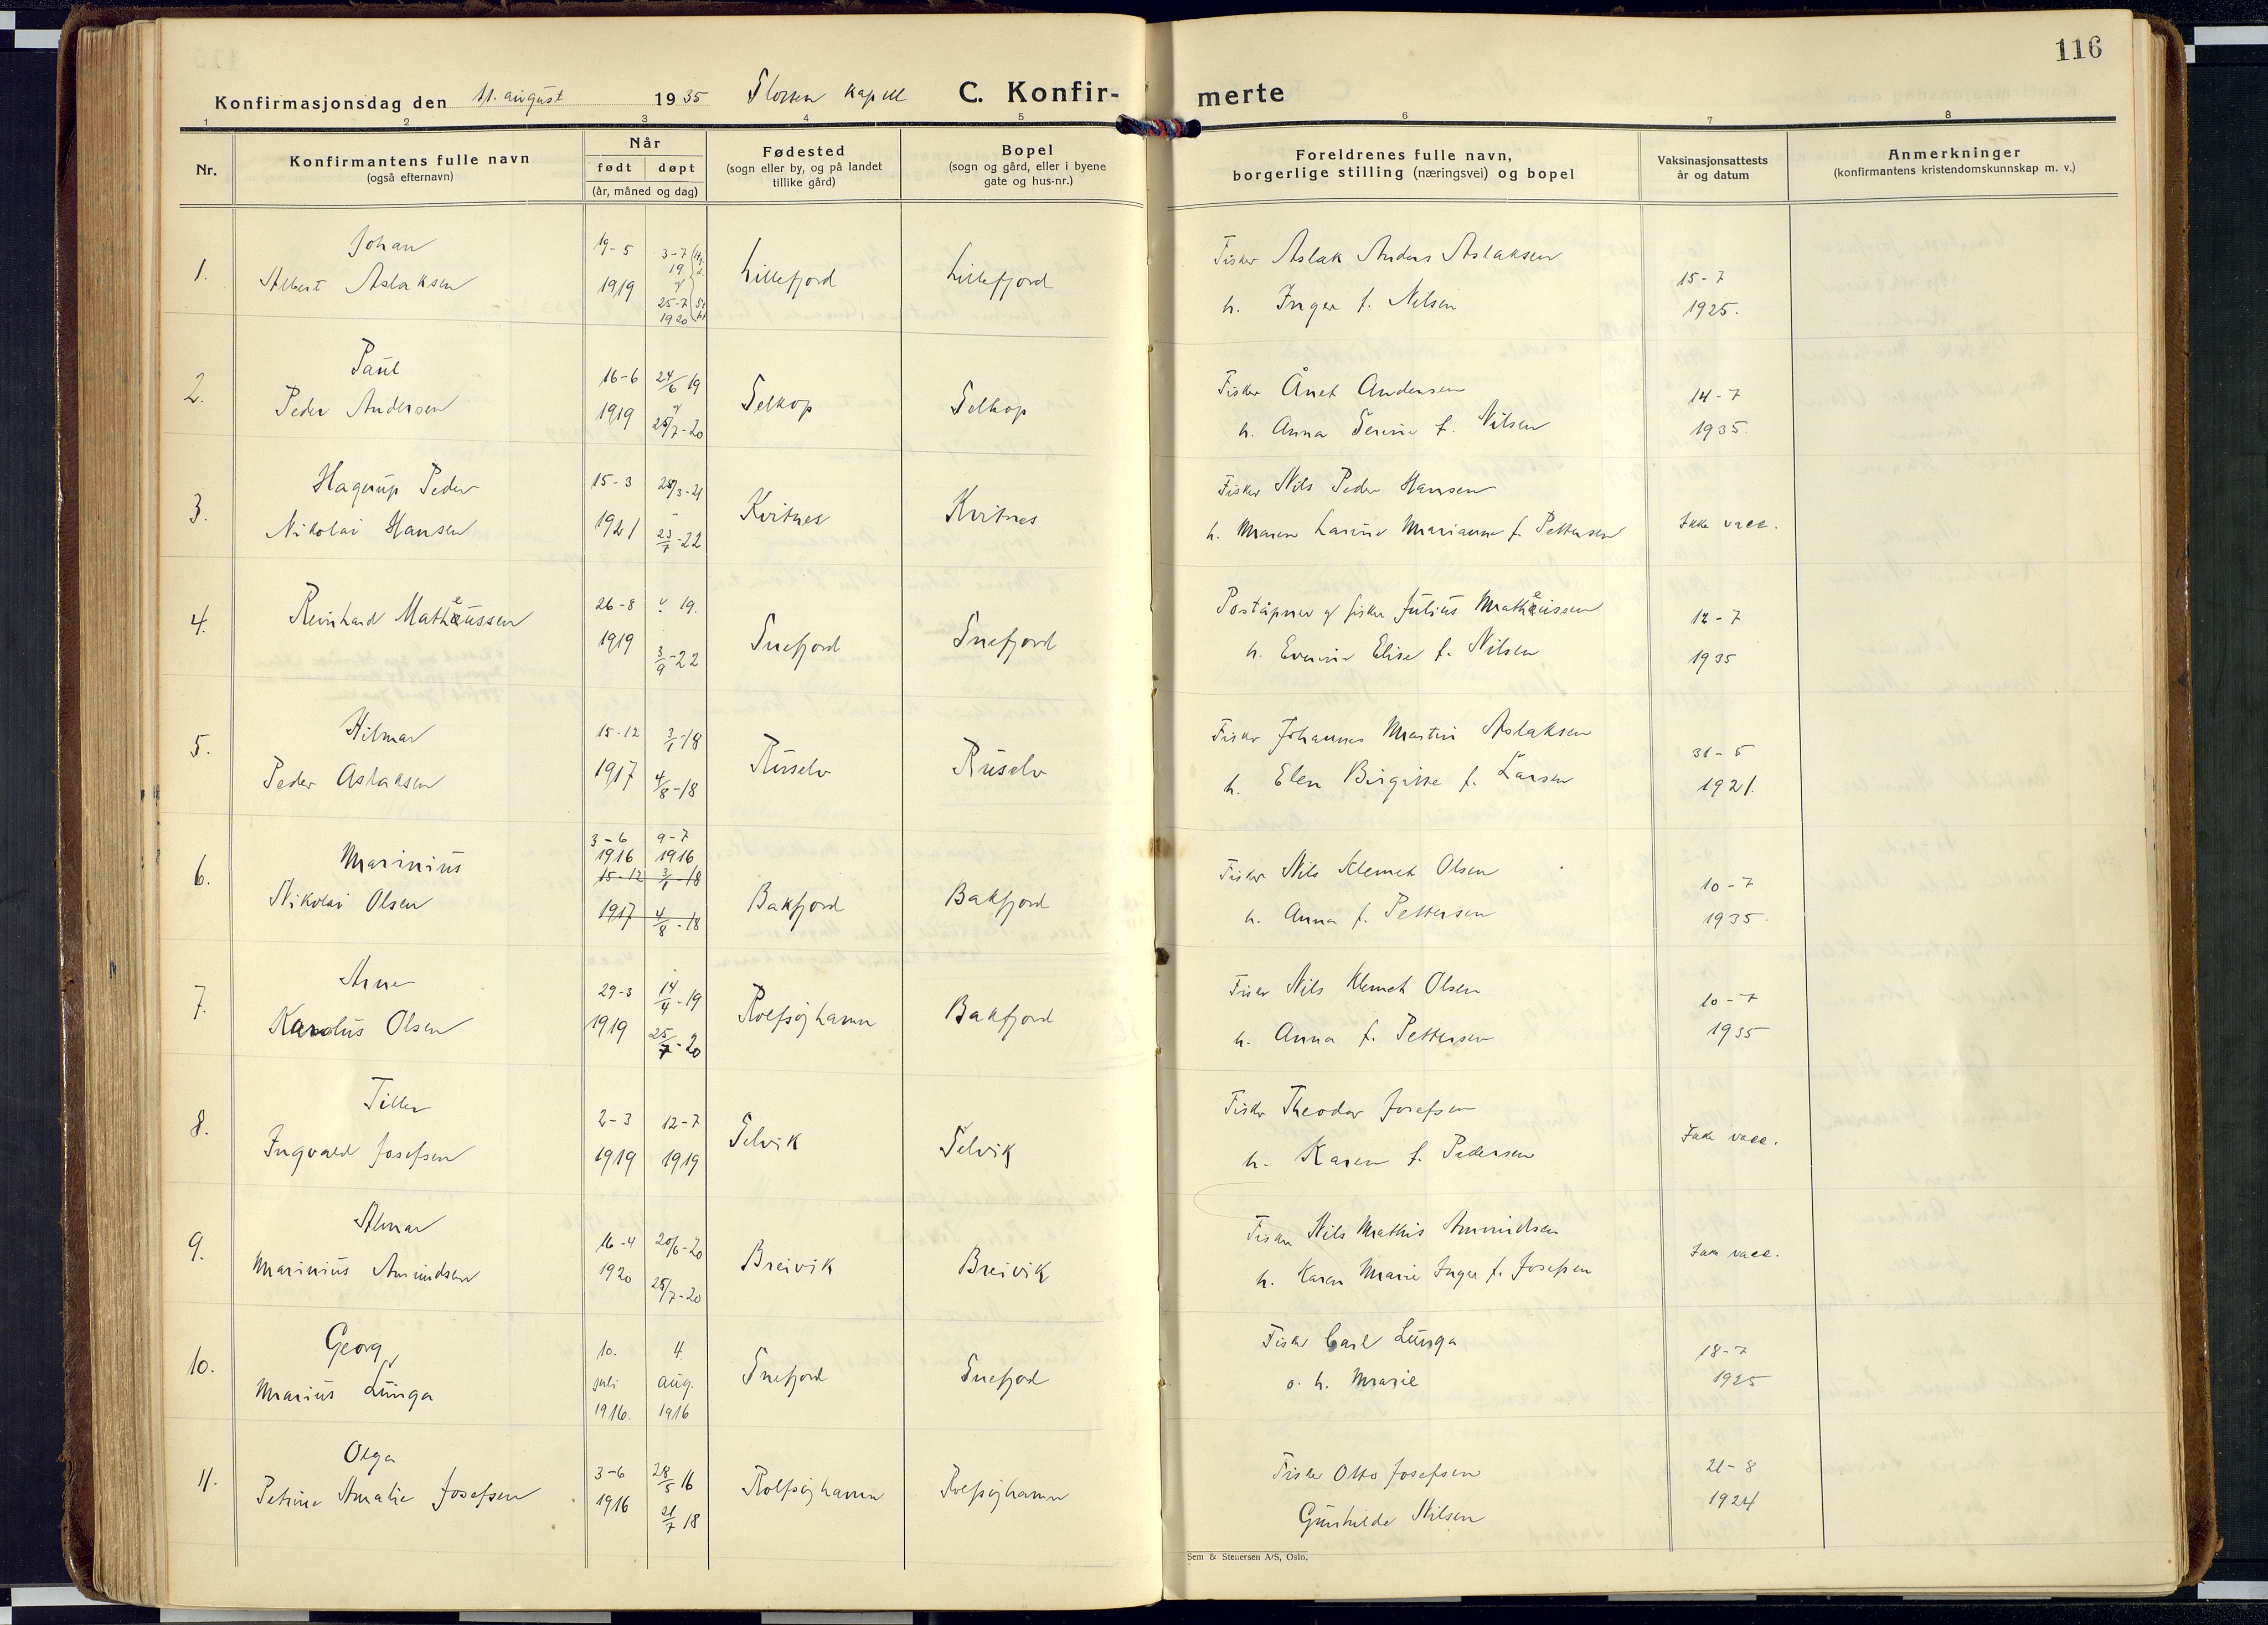 116
Konfirmasjonsdag den 11. august 1935 Slotten kapell C. Konfir- merte
1 2 3 4 5 6 7 8
Nr.
Konfirmantens fulle navn
(også efternavn)
Når
født døpt
(år, måned og dag)
Fødested
(sogn eller by, og på landet
tillike gård)
Bopel
(sogn og gård, eller i byene
gate og hus-nr.)
Foreldrenes fulle navn,
borgerlige stilling (næringsvei) og bopel
Vaksinasjonsattests
år og datum
Anmerkninger
(konfirmantens kristendomskunnskap m. v.)
1. Johan
Albert Aslaksen
19-5
1919
3-7
19
25-7
1920
Lillefjord
Lillefjord
Fisker Aslak Anders Aslaksen
h. Inger f. Nilsen
15-7
1925.
2. Paul
Peder Andersen
16-6
1919
24/6 19
25/7-20
Selkop
Selkop
Fisker Ånet Andersen
h. Anna Serine f. Nilsen
14-7
1935.
3. Hagerup Peder
Nikolai Hansen
15-3
1921
28/3-21
23/7-22
Kvitnes
Kvitnes
Fisker Nils Peder Hansen
h. Maren Larine Marianne f. Pettersen
Ikke vacc.
4. Reinhard Matheussen
26-8
1919
19.
3/9-22
Snefjord
Snefjord
Poståpner og fisker Julius Matheussen
h. Evenine Elise f. Nilsen
12-7
1935
5. Hilmar
Peder Aslaksen
15-12
1917
3/1-18
4/8-18
Russelv
Russelv
Fisker Johannes Martin Aslaksen
h. Elen Birgitte f. Larsen
31-5
1921.
6. Marinius
Nikolai Olsen
3-6
1916
15-12
1917
9-7
1916
3/1-18
4/8-18
Bakfjord
Bakfjord
Fisker Nils Klemet Olsen
h. Anna f. Pettersen
10-7
1935.
7. Arne
Karolus Olsen
29-3
1919
14/4-19
25/7-20
Rolfsøyhamn
Bakfjord
Fisker Nils Klemet Olsen
h. Anna f. Pettersen
10-7
1935
8. Tiller
Ingvald Josefsen
2-3
1919
12-7
1919
Selvik
Selvik
Fisker Theodor Josefsen
h. Karen f. Pedersen
Ikke vacc.
9. Almar
Marinius Amundsen
16-4
1920
20/6-20
25/7-20
Breivik
Breivik
Fisker Nils Mathis Amundsen
h. Karen Marie Inger f. Josefsen
Ikke vacc.
10. Georg
Marius Lunga
10.
juli
1916.
4.
aug.
1916
Snefjord
Snefjord
Fisker Carl Lunga
o. h. Marie
18-7
1925
11. Olga
Petrine Amalie Josefsen
3-6
1916
28/5 16
21/7 18
Rolfsøyhamn
Rolfsøyhamn
Fisker Otto Josefsen
Gunhilde Nilsen
21-8
1924
Sem & Stenersen A/S, Oslo.